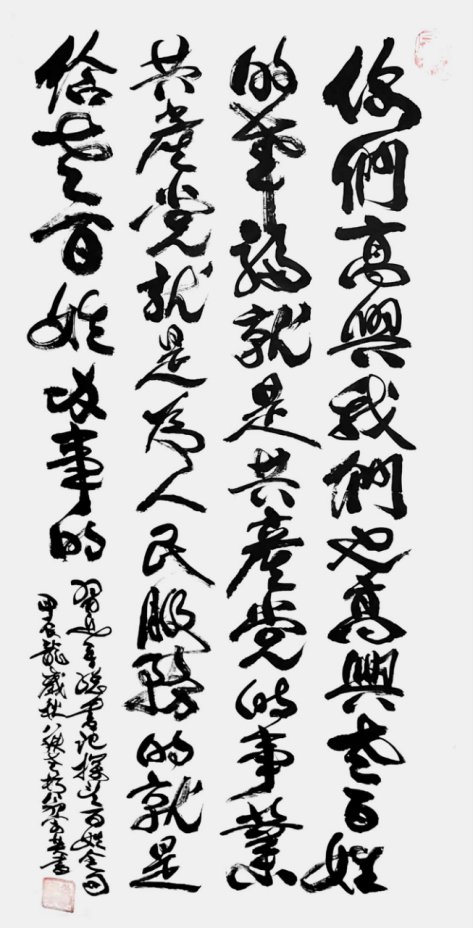 你們高興我們也高興老百姓
的幸福就是共產党的事業
共產党就是為人民服務的就是
給老百姓办事的
習近平總書記探望百姓金句
甲辰龍歲秋八